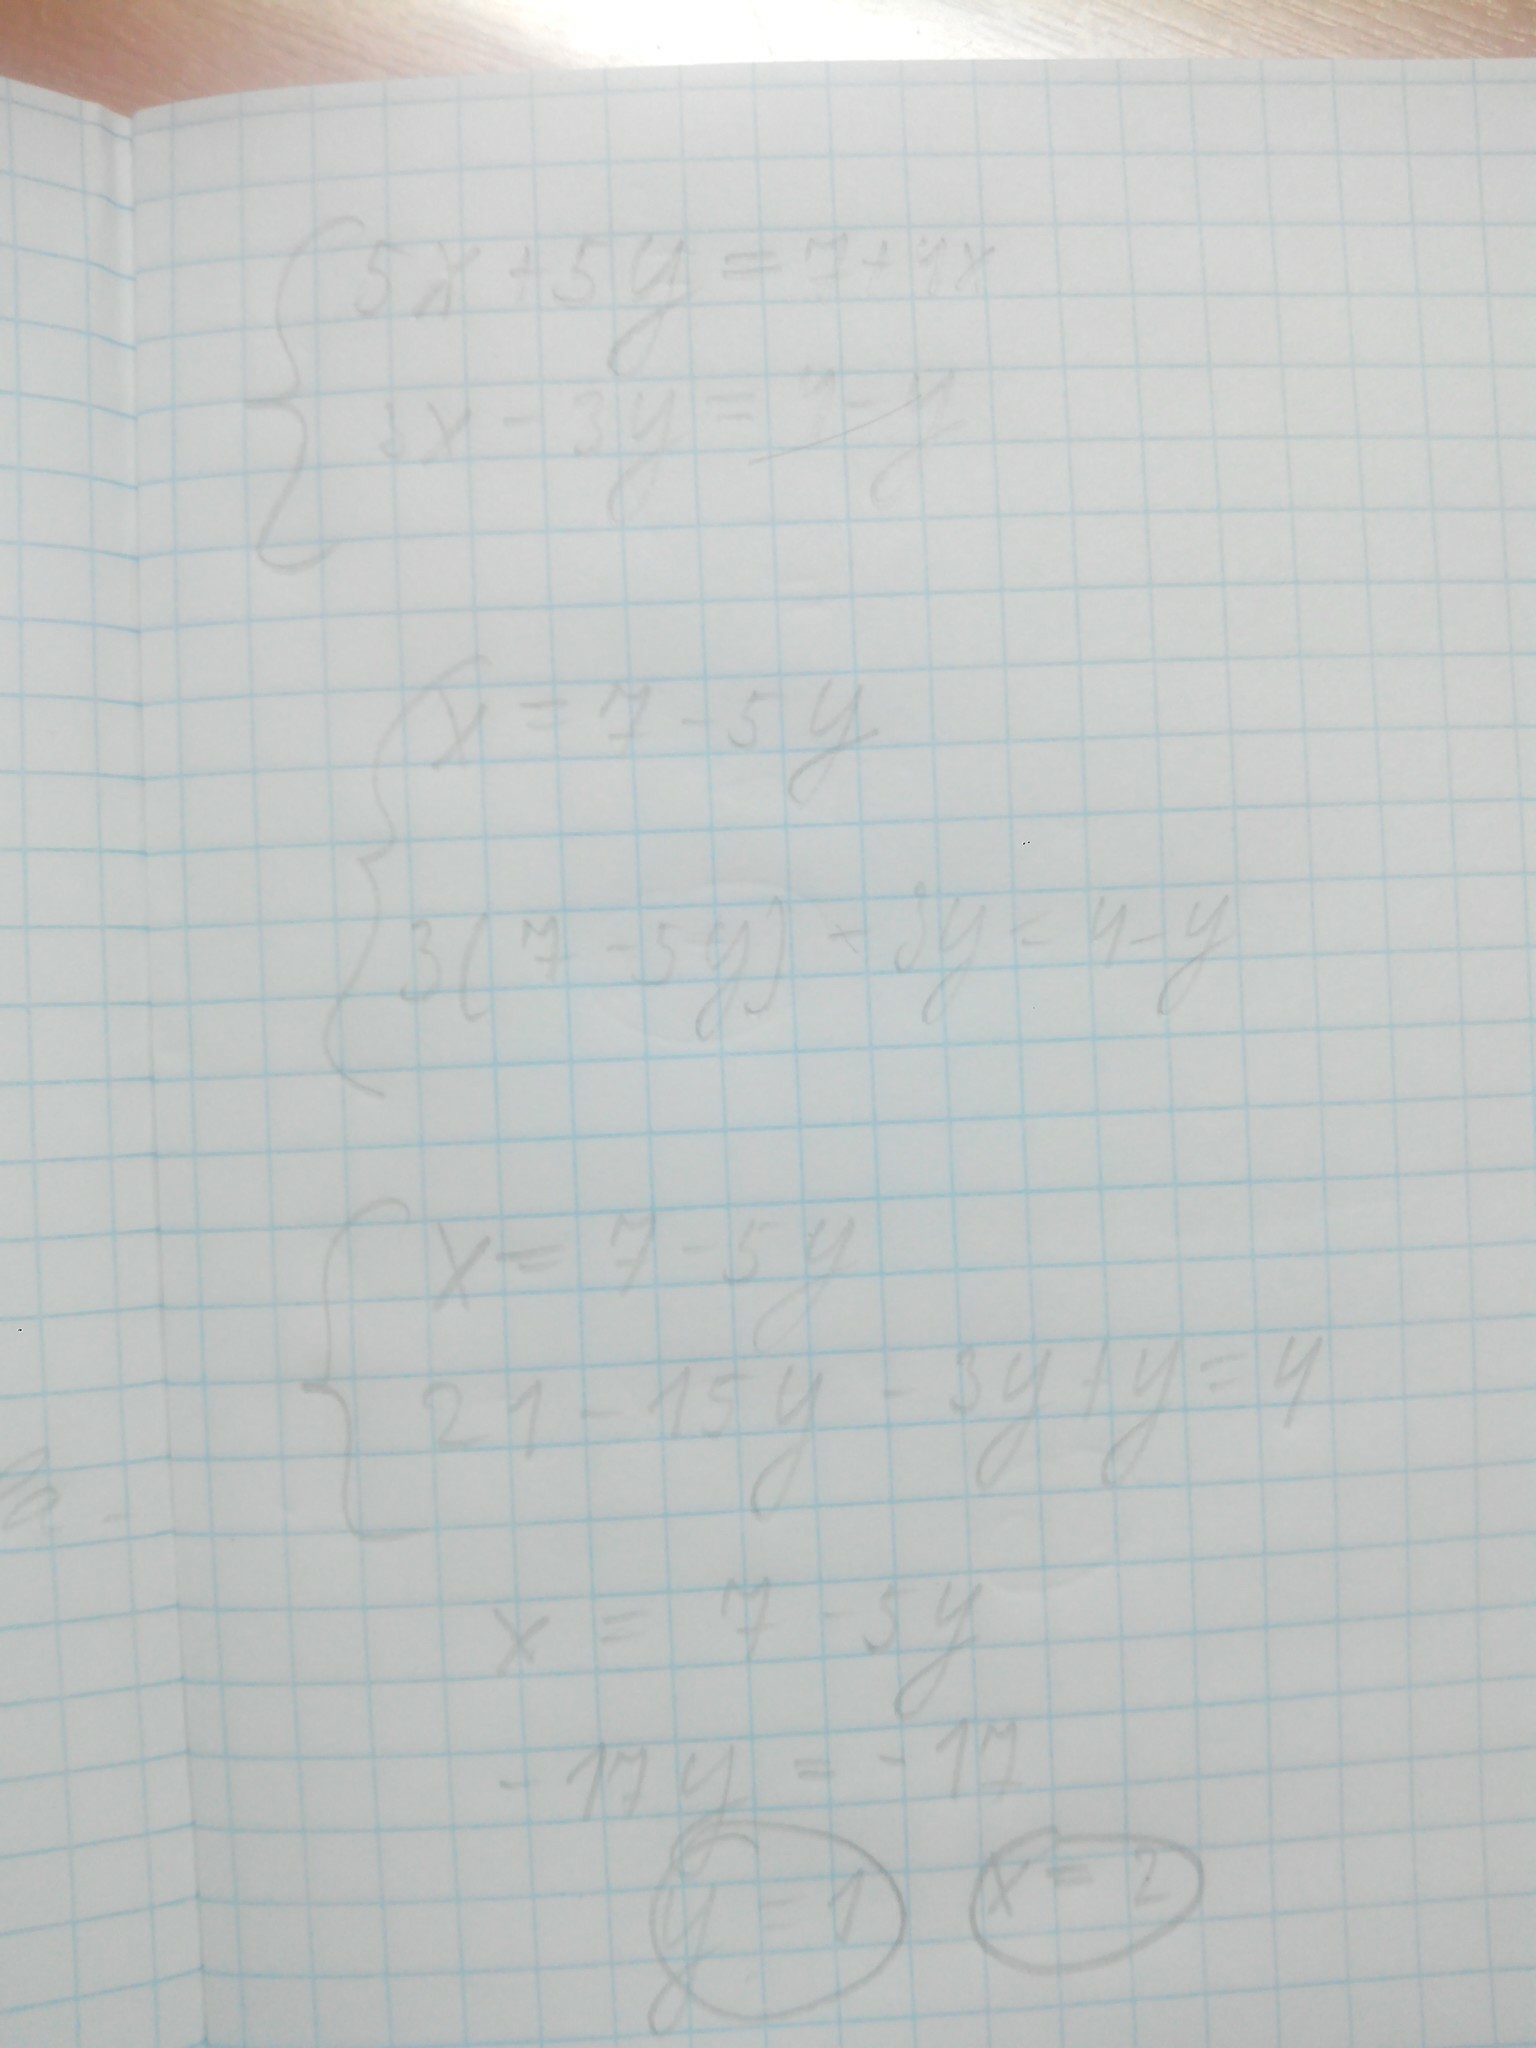 5x + 5y = 7 + 4x
3x - 3y = 4 - y
x = 7 - 5y
3(7 - 5y) - 3y = 4 - y
x = 7 - 5y
21 - 15y - 3y + y = 4
x = 7 - 5y
-17y = -17
y = 1 x = 2